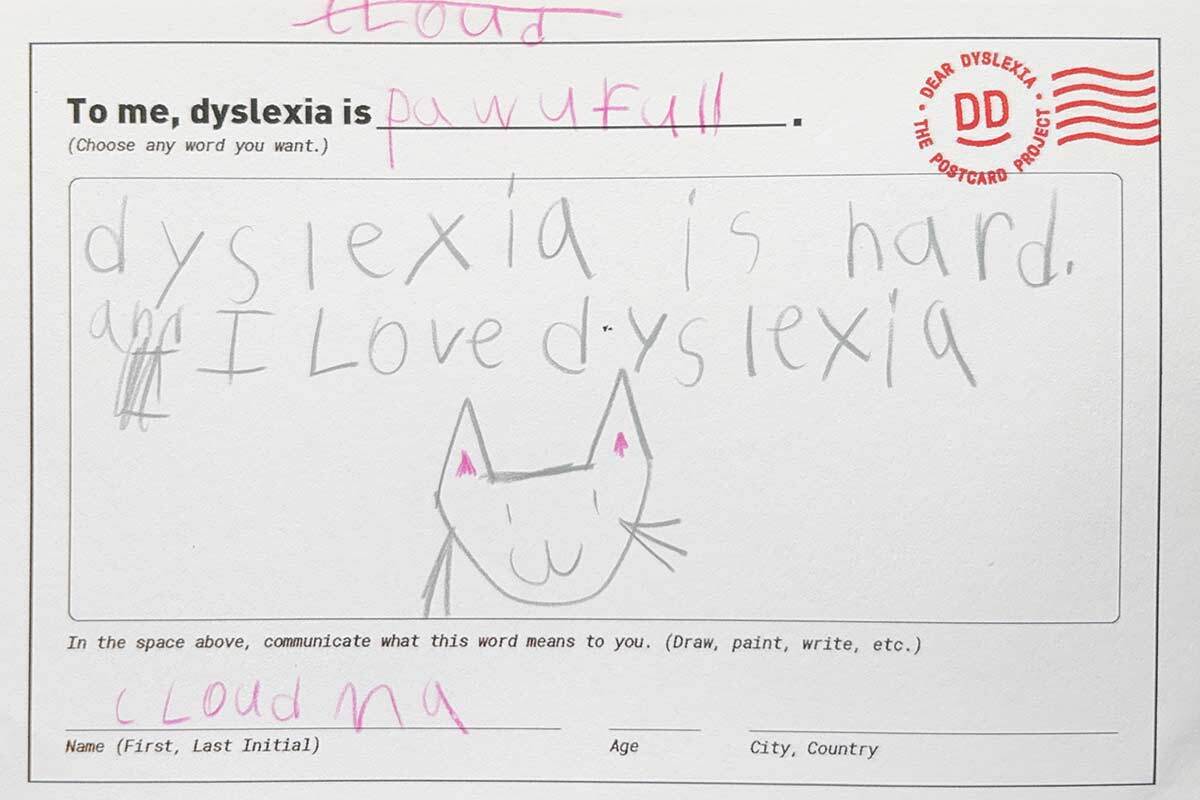 CLOUD
To me, dyslexia is pawufull.
(Choose any word you want.)
• DEAR DYSLEXIA • THE POSTCARD PROJECT
DD
dyslexia is hard.
I Love dyslexia
In the space above, communicate what this word means to you. (Draw, paint, write, etc.)
CLOUD MA
Name (First, Last Initial)
Age
City, Country